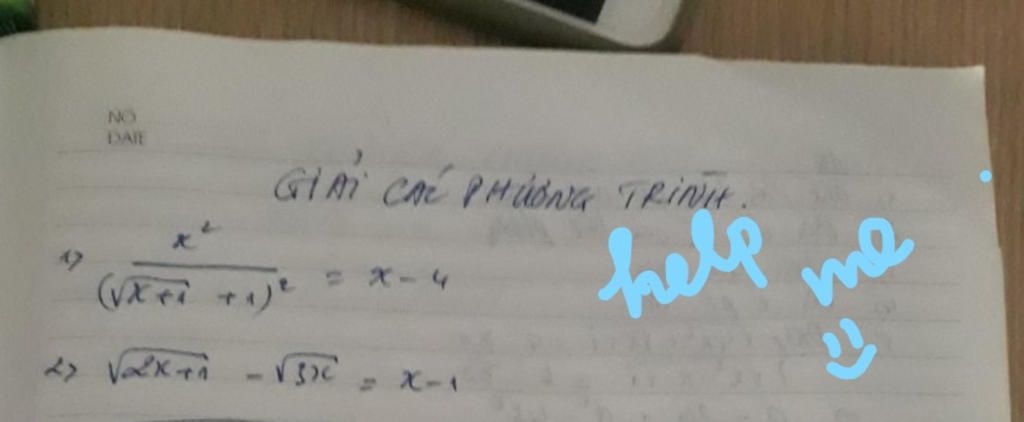 NO
DATE
GIẢI CÁC PHƯƠNG TRÌNH.
1) x² / (√(x+1) + 1)² = x - 4
2) √(2x+1) - √(3x) = x - 1
help me